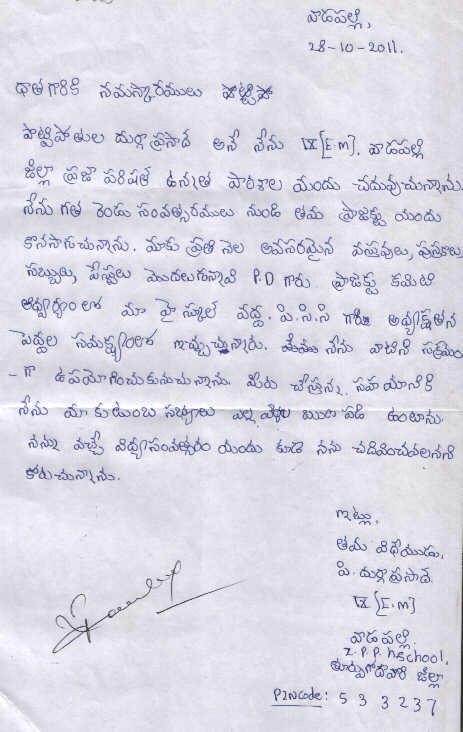 వాడపల్లి,
28-10-2011.
దాత గారికి నమస్కారములు
పొట్టిపోతుల దుర్గాప్రసాద్ అనే నేను IX [E.M]. వాడపల్లి
జిల్లా ప్రజా పరిషత్ ఉన్నత పాఠశాల యందు చదువుచున్నాను.
నేను గత రెండు సంవత్సరములు నుండి తమ ప్రాజెక్టు యందు
కొనసాగుచున్నాను. మాకు ప్రతి నెల అవసరమైన వస్తువులు, పుస్తకాలు,
సబ్బులు, పేస్టులు మొదలుగున్నావి P.D గారు ప్రాజెక్టు కమిటి
ఆధ్వర్యంలో మా హైస్కూల్ వద్ద. పి.సి.సి గారి అధ్యక్షతన
పెద్దల సమక్షంలో ఇచ్చుచున్నారు. నేను వాటిని సక్రమం
-గా ఉపయోగించుకునుచున్నాను. మీరు చేస్తున్న సహయానికి
నేను మా కుటుంబ సభ్యులు ఎల్ల వేళల ఋణ పడి ఉంటాను.
నన్ను వచ్చే విద్యాసంవత్సరం యందు కూడా నను చదివించవలనని
కోరుచున్నాను.
ఇట్లు,
తమ విధేయుడు,
పి. దుర్గాప్రసాద్.
IX [E.M]
వాడపల్లి.
Z.P.P. hschool,
తూర్పుగోదావరి జిల్లా
PINcode: 5 3 3 2 3 7